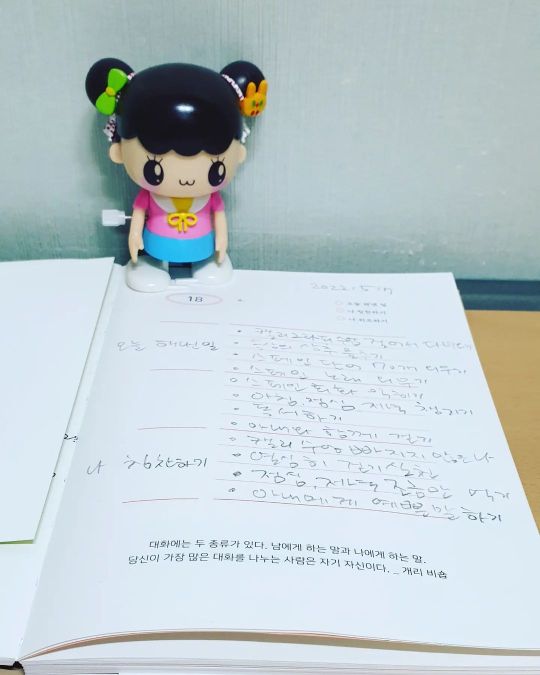 18
2022.5.17
오늘 해낸 일
나 칭찬하기
나 위로하기
• 캘리그라피 수업 걸어서 다녀오기
듣기
• 스페인 단어 70개 외우기
• 스페인 노래 외우기
• 스페인 회화 익히기
오늘 해낸 일
• 아침, 점심, 저녁 챙기기
• 독서하기
• 아내와 함께 걷기
• 캘리 수업 빠지지 않은 나
나 칭찬하기
• 열심히 걷기 실천
• 점심, 저녁 먹기
• 아내에게 예쁜 말 하기
대화에는 두 종류가 있다. 남에게 하는 말과 나에게 하는 말.
당신이 가장 많은 대화를 나누는 사람은 자기 자신이다. _ 개리 비숍